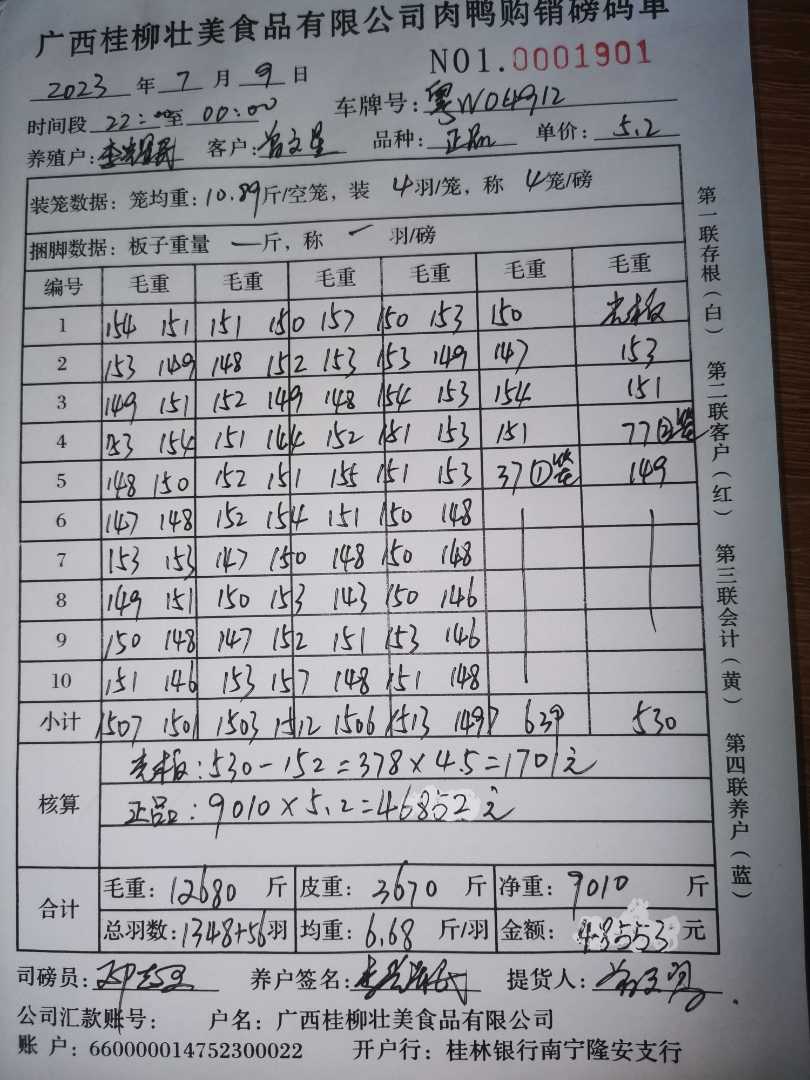 广西桂柳壮美食品有限公司肉鸭购销磅码单
NO1.0001901
2023 年 7 月 9 日
时间段 22:00 至 00:00 车牌号: 粤W04912
养殖户: 客户: 曾文星 品种: 正品 单价: 5.2
装笼数据: 笼均重: 10.89 斤/空笼, 装 4 羽/笼, 称 4 笼/磅
捆脚数据: 板子重量 — 斤, 称 — 羽/磅
编号 毛重 毛重 毛重 毛重 毛重 毛重
1 154 151 151 150 157 150 153 150 光板
2 153 149 148 152 153 153 149 147 153
3 149 151 152 149 148 154 153 154 151
4 153 154 151 144 152 151 153 151 77②笼
5 148 150 152 151 155 151 153 37①笼 149
6 147 148 152 154 151 150 148
7 153 153 147 150 148 150 148
8 149 151 150 153 143 150 146
9 150 148 147 152 151 153 146
10 151 146 153 157 148 151 148
小计 1507 1501 1503 1512 1506 1513 1497 639 530
核算
光板: 530-152=378×4.5=1701元
正品: 9010×5.2=46852元
合计
毛重: 12680 斤 皮重: 3670 斤 净重: 9010 斤
总羽数: 1348+56羽 均重: 6.68 斤/羽 金额: 48553 元
司磅员: 养户签名: 提货人:
公司汇款账号: 户名: 广西桂柳壮美食品有限公司
账 户: 660000014752300022 开户行: 桂林银行南宁隆安支行
第一联存根(白) 第二联客户(红) 第三联会计(黄) 第四联养户(蓝)